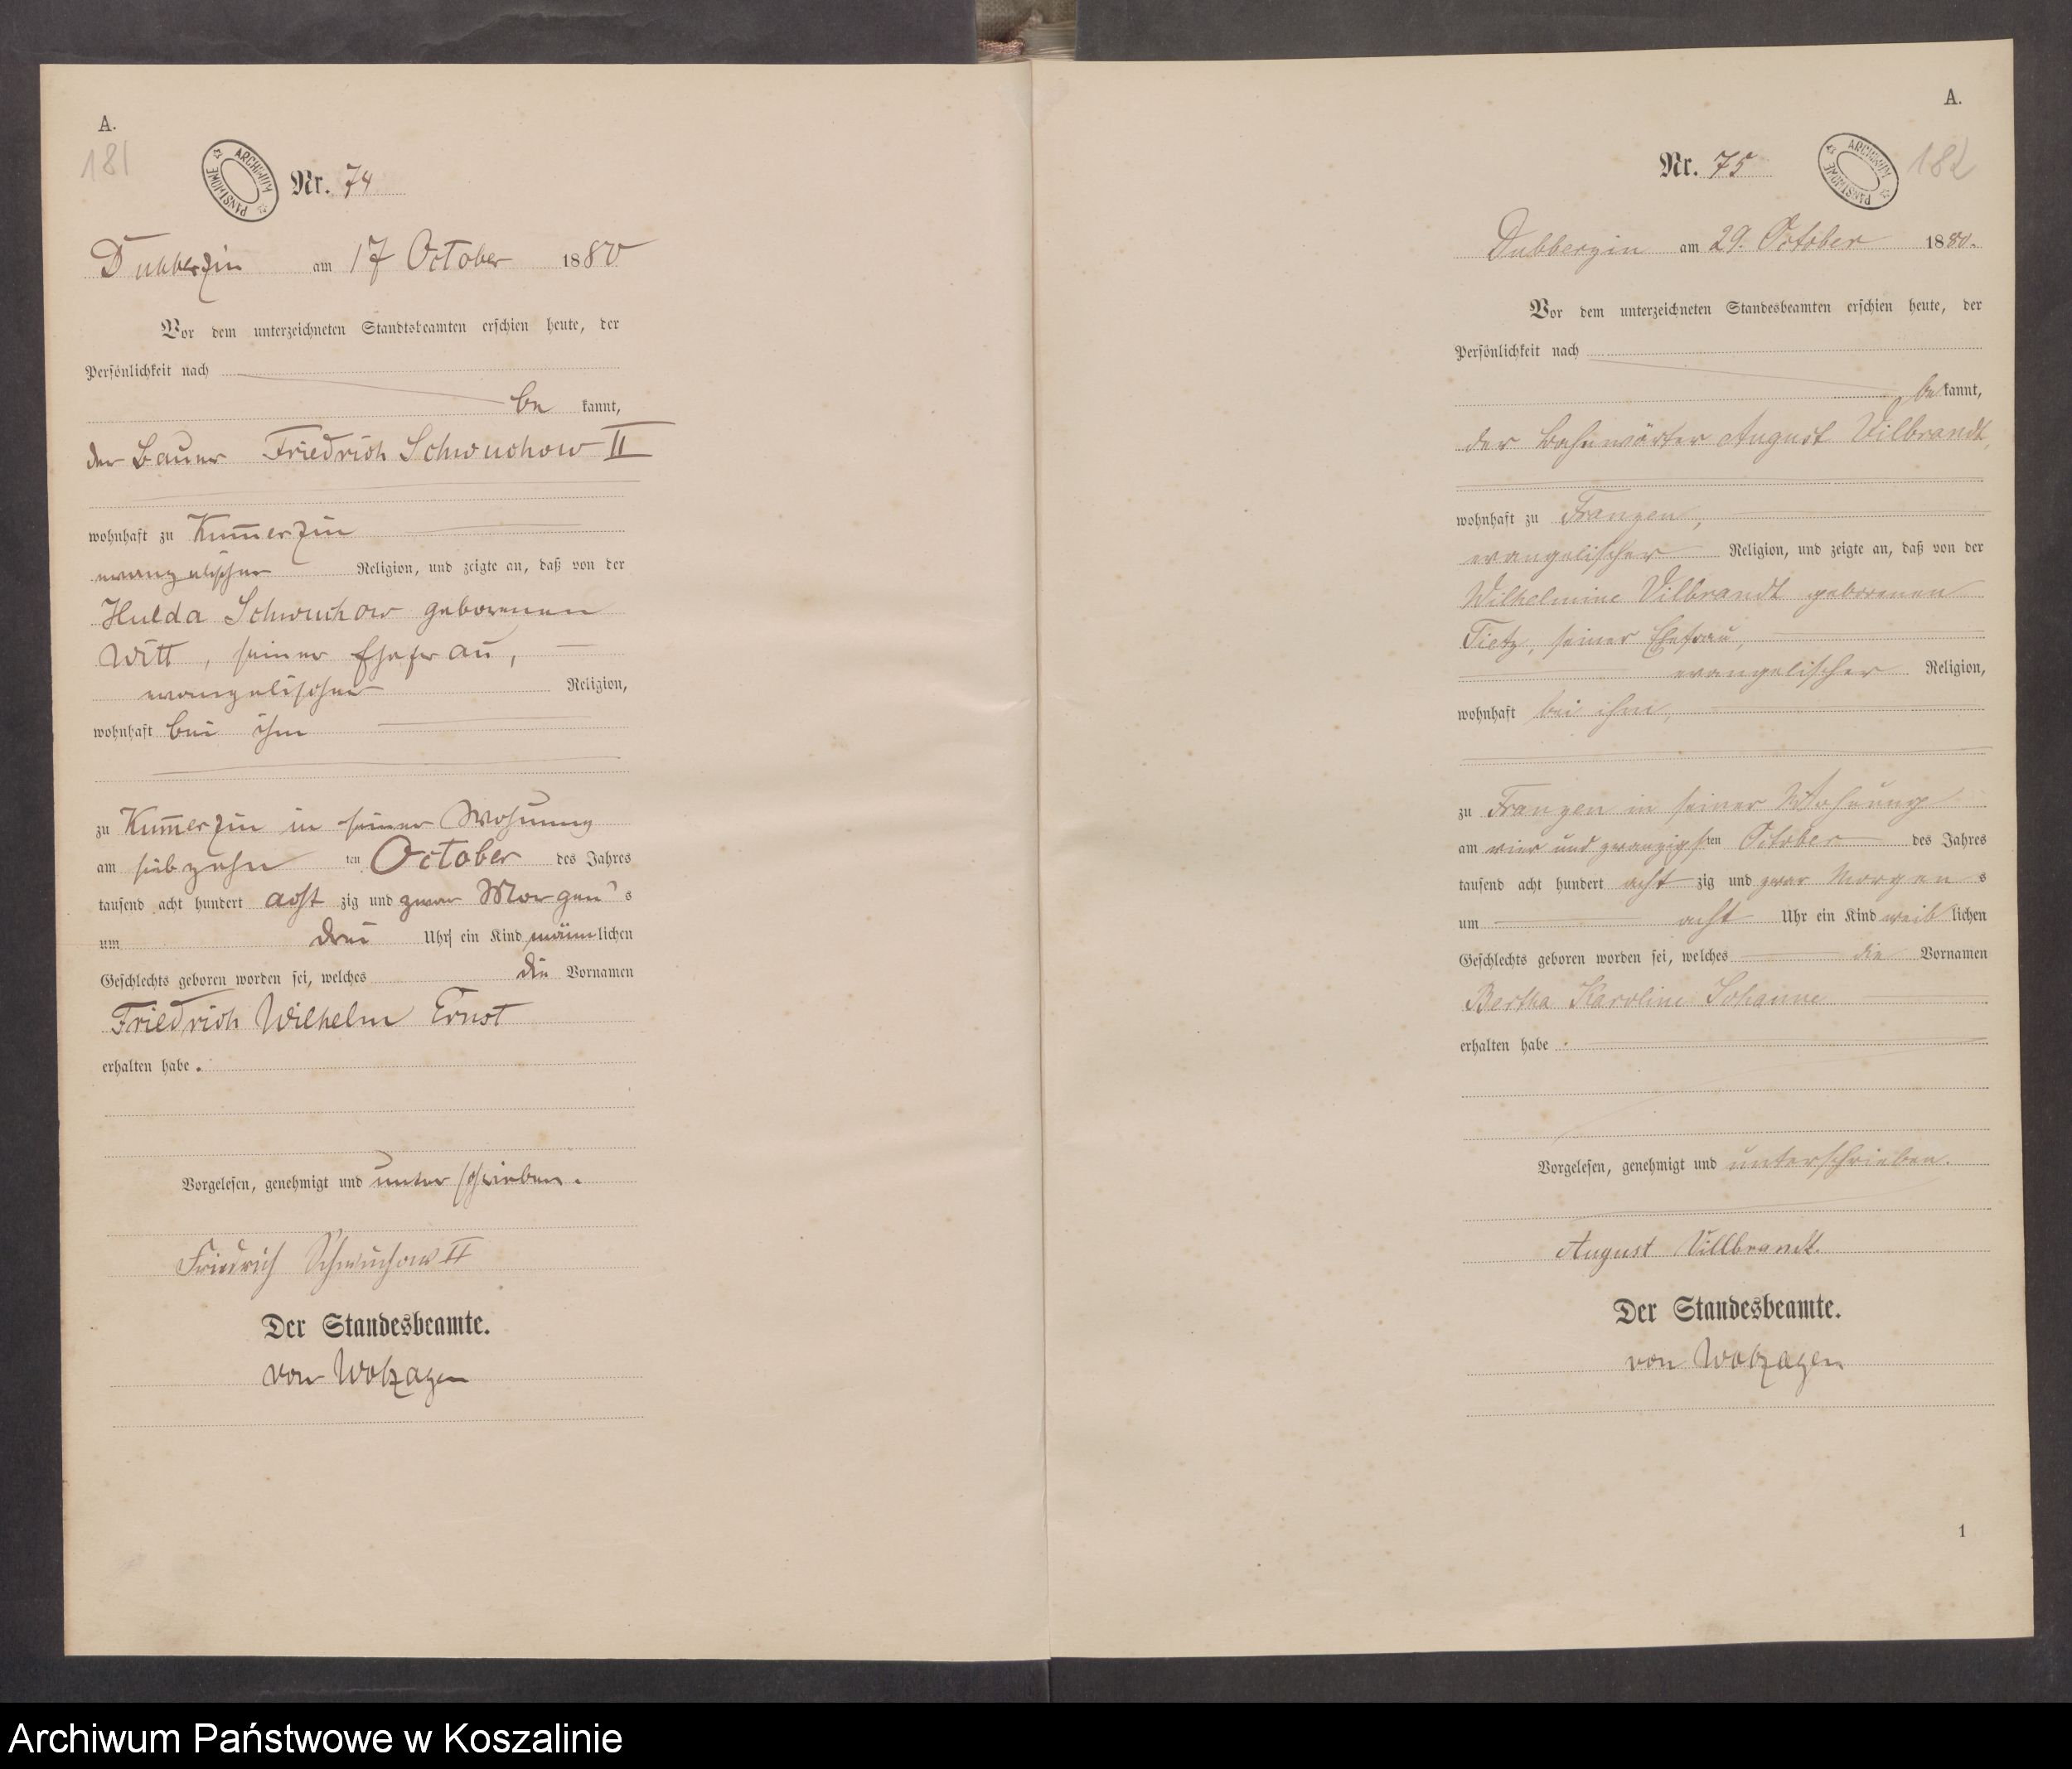 A.
181
ARCHIWUM PAŃSTWOWE
Nr. 74
Dubberzin am 17 October 1880
Vor dem unterzeichneten Standesbeamten erschien heute, der
Persönlichkeit nach
be kannt,
der Bauer Friedrich Schwuchow II
wohnhaft zu Kum̅erzin
evangelischer Religion, und zeigte an, daß von der
Hulda Schwuchow geborenen
Witt, seiner Ehefrau,
evangelischer Religion,
wohnhaft bei ihm
zu Kum̅erzin in seiner Wohnung
am siebzehn ten October des Jahres
tausend acht hundert acht zig und zwar Morgen's
um drei Uhr ein Kind männ lichen
Geschlechts geboren worden sei, welches die Vornamen
Friedrich Wilhelm Ernst
erhalten habe.
Vorgelesen, genehmigt und unterschrieben.
Friedrich Schwuchow II
Der Standesbeamte.
von Wolzogen
A.
Nr. 75
ARCHIWUM PAŃSTWOWE
182
Dubberzin am 29. October 1880.
Vor dem unterzeichneten Standesbeamten erschien heute, der
Persönlichkeit nach
be kannt,
der Bahnwärter August Vilbrandt,
wohnhaft zu Franzen,
evangelischer Religion, und zeigte an, daß von der
Wilhelmine Vilbrandt geborenen
Tietz, seiner Ehefrau,
evangelischer Religion,
wohnhaft bei ihm,
zu Franzen in seiner Wohnung
am vier und zwanzigsten October des Jahres
tausend acht hundert acht zig und zwar Morgen s
um acht Uhr ein Kind weib lichen
Geschlechts geboren worden sei, welches die Vornamen
Bertha Karoline Johanne
erhalten habe.
Vorgelesen, genehmigt und unterschrieben.
August Villbrandt.
Der Standesbeamte.
von Wolzogen
1
Archiwum Państwowe w Koszalinie